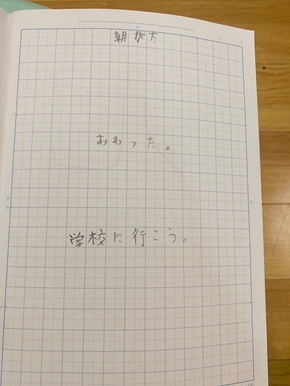 朝がた
おわった。
学校に行こう。